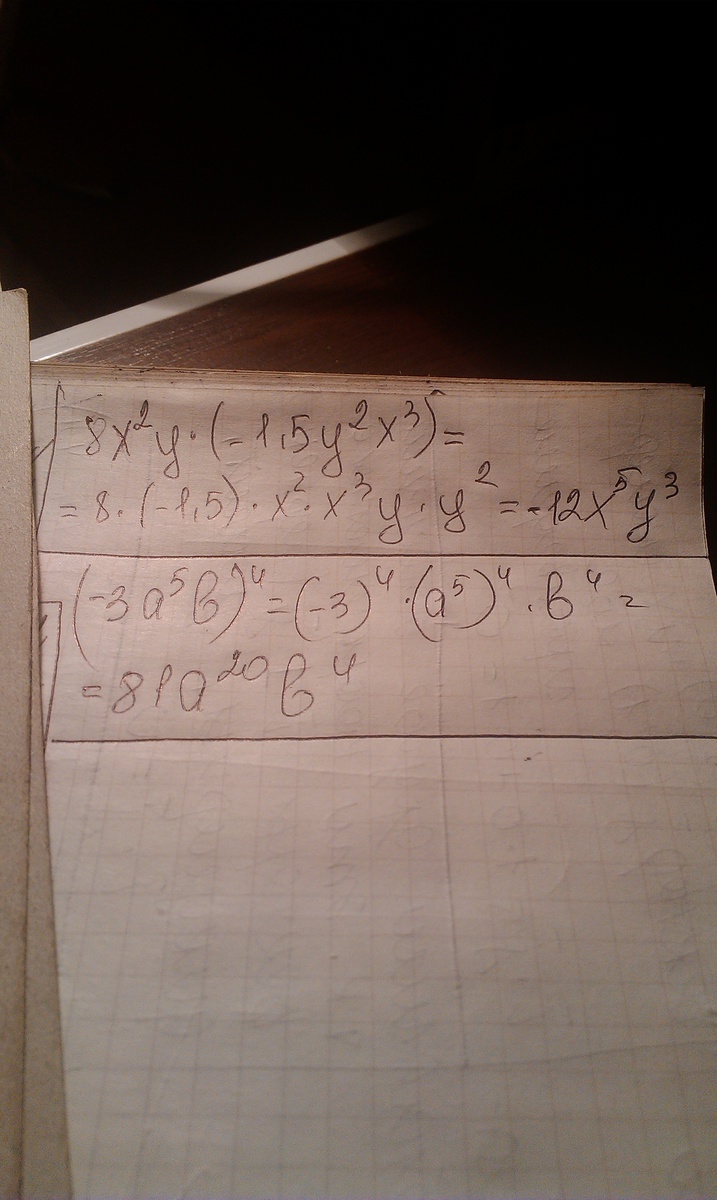 8x²y·(-1,5y²x³)=
=8·(-1,5)·x²·x³y·y²=-12x⁵y³
(-3a⁵b)⁴=(-3)⁴·(a⁵)⁴·b⁴=
=81a²⁰b⁴